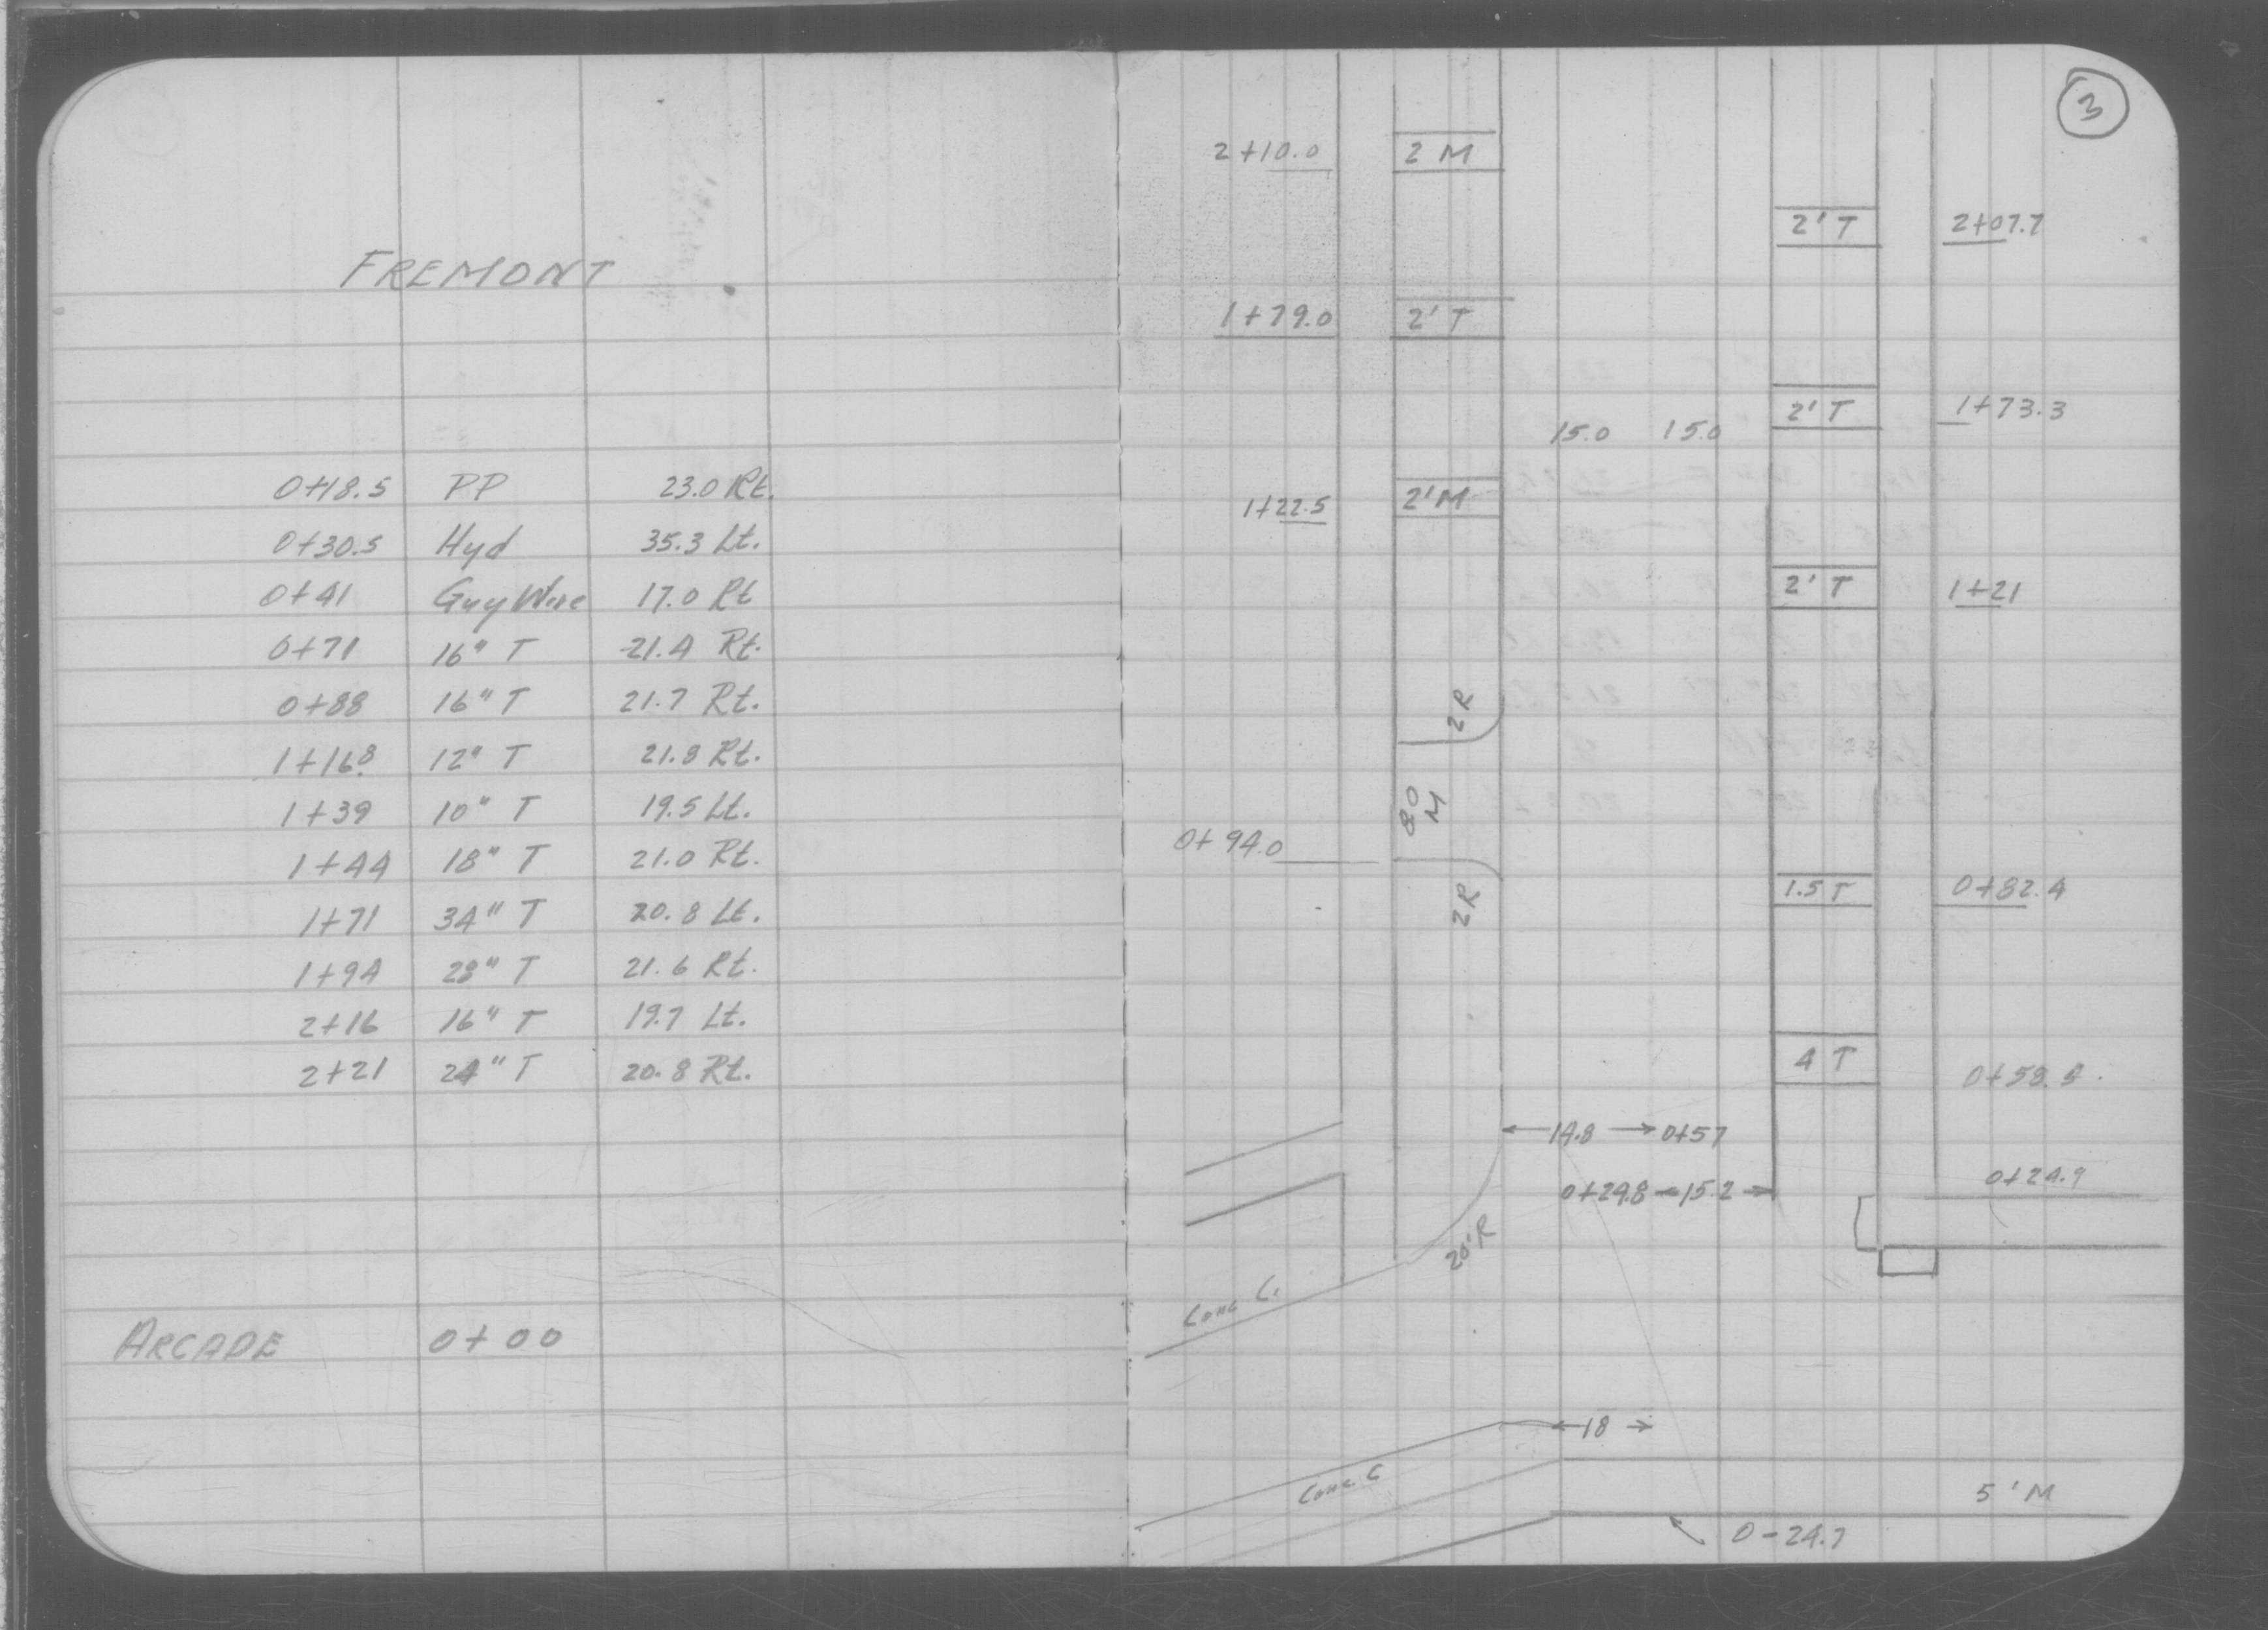 FREMONT
0+18.5 PP 23.0 Rt.
0+30.5 Hyd 35.3 Lt.
0+41 Guy Wire 17.0 Rt
0+71 16" T 21.4 Rt.
0+88 16" T 21.7 Rt.
1+16.8 12" T 21.8 Rt.
1+39 10" T 19.5 Lt.
1+44 18" T 21.0 Rt.
1+71 34" T 20.8 Lt.
1+94 28" T 21.6 Rt.
2+16 16" T 19.7 Lt.
2+21 24" T 20.8 Rt.
ARCADE 0+00
3
2+10.0 2 M
2' T 2+07.7
1+79.0 2' T
2' T 1+73.3
15.0 15.0
1+22.5 2' M
2' T 1+21
2R
80 M
0+94.0
1.5 T 0+82.4
2R
4 T 0+58.5
14.8 0+57
0+24.9
0+29.8 15.2
20' R
Conc C.
18
Conc C
5' M
0-24.7